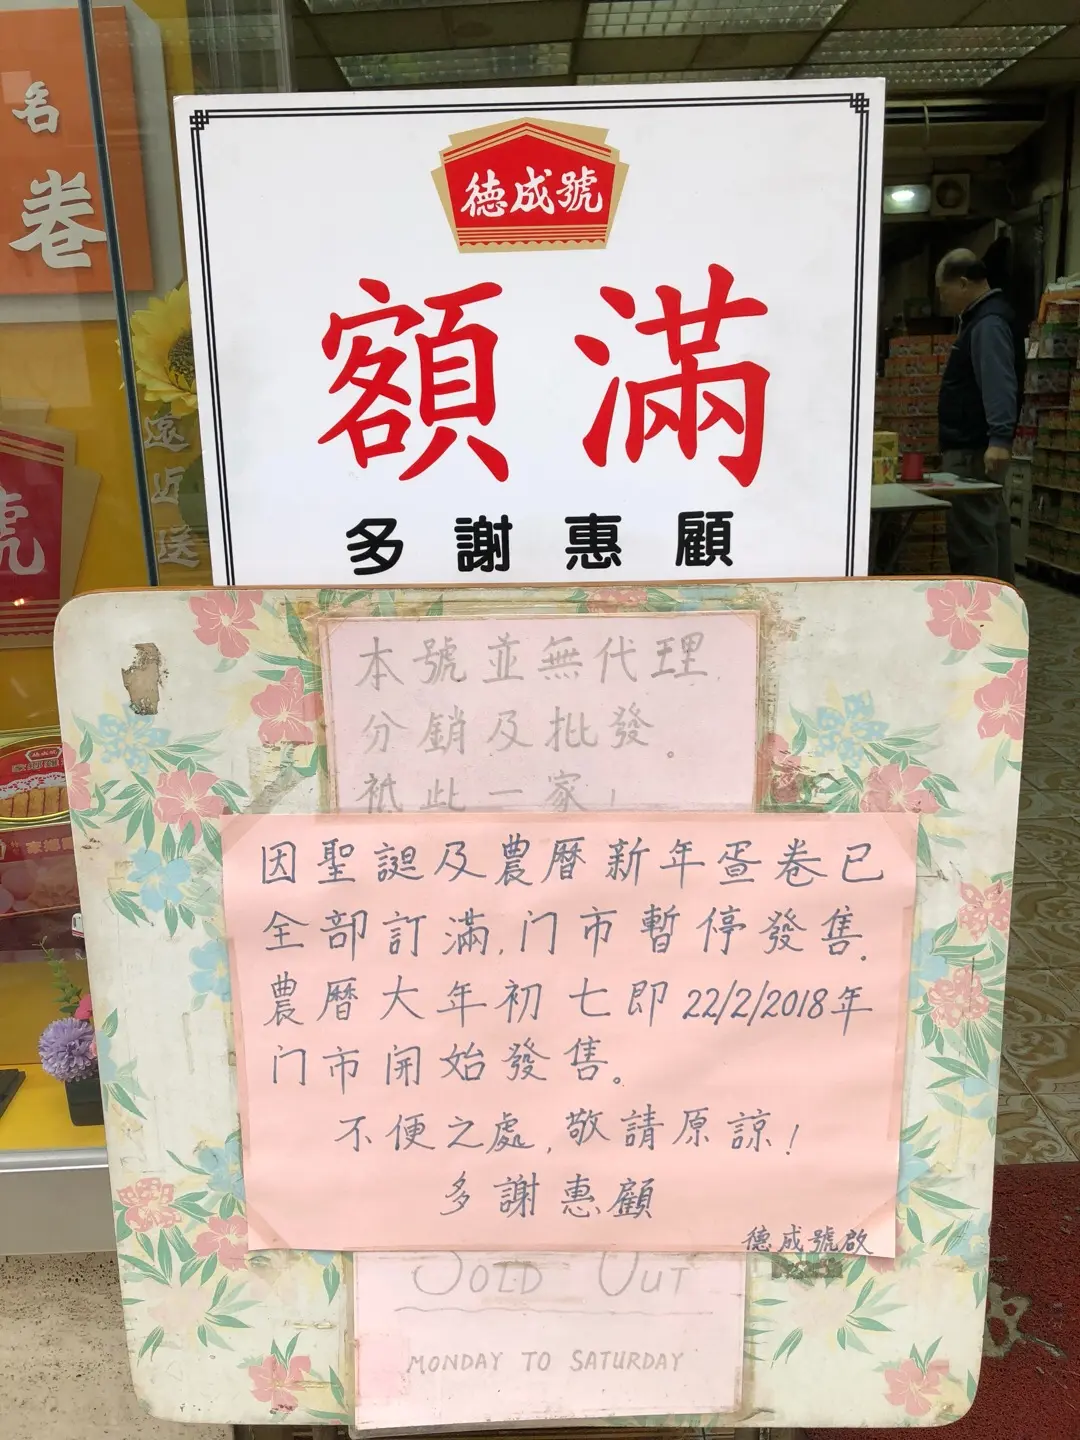 名卷
德成號
額滿
多謝惠顧
遠近
送
號
本號並無代理
分銷及批發。
祗此一家!
因聖誕及農曆新年蛋卷已
全部訂滿,门市暫停發售.
農曆大年初七即22/2/2018年
门市開始發售。
不便之處,敬請原諒!
多謝惠顧
德成號啟
SOLD OUT
MONDAY TO SATURDAY